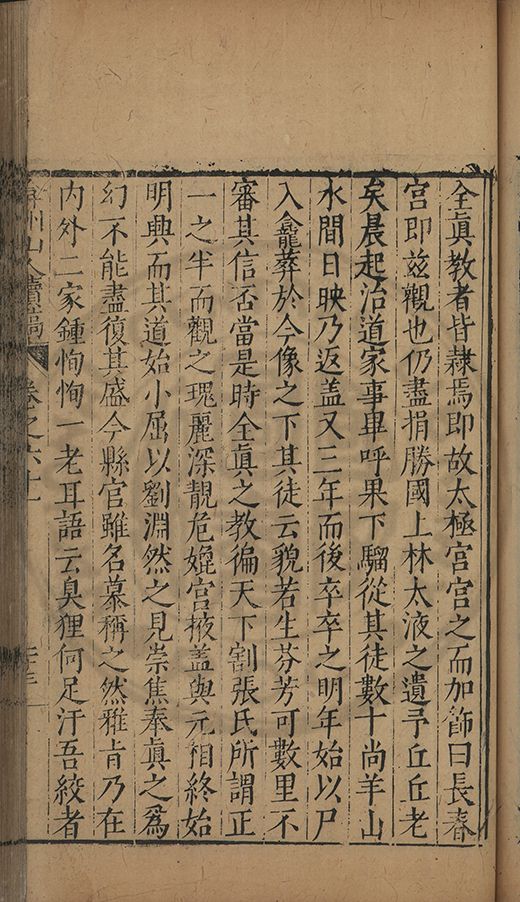 全真教者皆隷焉即故太極宮宮之而加飾曰長春
宮即茲觀也仍盡捐勝國上林太液之遺予丘丘老
矣晨起治道家事畢呼果下騮從其徒數十尚羊山
水間日映乃返盖又三年而後卒卒之明年始以尸
入龕葬於今像之下其徒云貌若生芬芳可數里不
審其信否當是時全眞之教徧天下割張氏所謂正
一之半而觀之瑰麗深靚危㜫宮掖盖與元相終始
明興而其道始小屈以劉淵然之見崇焦奉眞之爲
幻不能盡復其盛今縣官雖名慕稱之然雅肯乃在
内外二家鍾恂恂一老耳語云臭狸何足汙吾絞者
弇州山人續稿
卷之六十